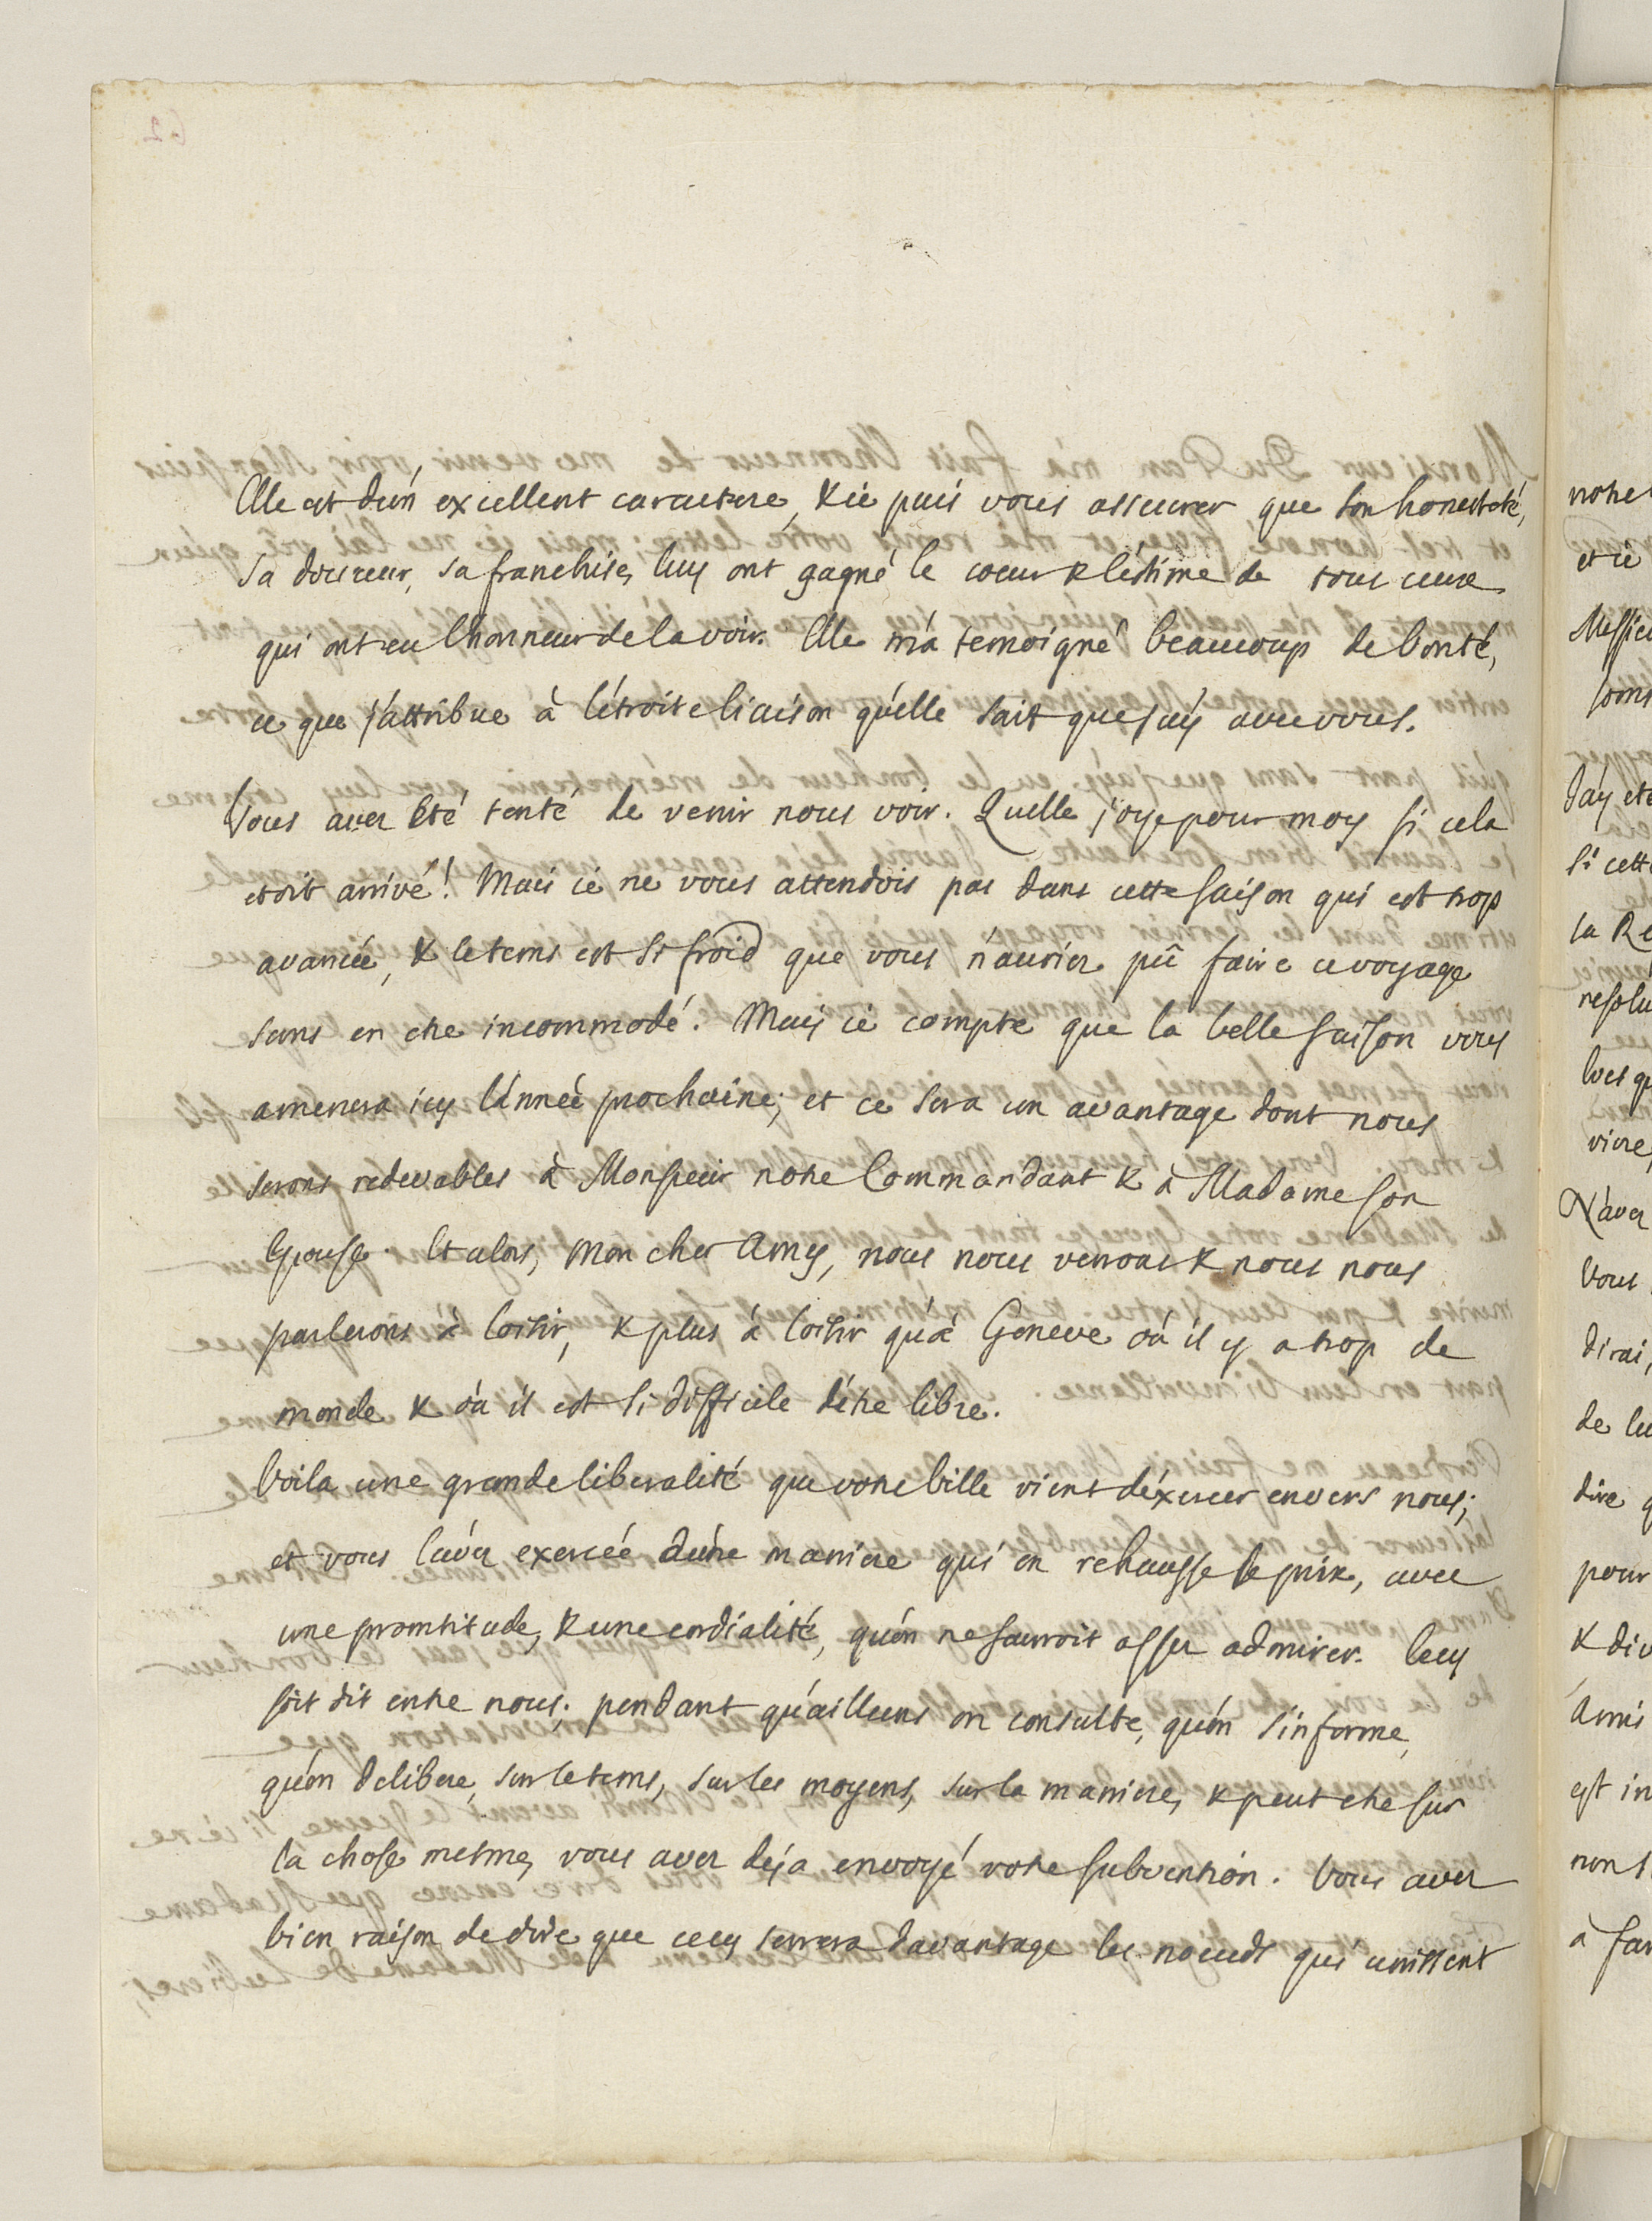 Elle est d'un excellent caractere, & ie puis vous asseurer que son honesteté,
sa douceur, sa franchise, luy ont gagné le coeur & l'estime de tous ceux
qui ont eu l'honneur de la voir. Elle m'a temoigné beaucoup de bonté,
ce que j'attribue à l'étroite liaison qu'elle sait que j'ay avec vous.
Vous avez eté tenté de venir nous voir. Quelle joye pour moy si cela
etoit arrivé! Mais ie ne vous attendois pas dans cette saison qui est trop
avancée, & le tems est si froid que vous n'auriez pû faire ce voyage
sans en etre incommodé. Mais ie compte que la belle saison vous
amenera icy l'année prochaine; et ce sera un avantage dont nous
serons redevables à Monsieur notre Commandant & à Madame son
Epouse. Et alors, mon cher Amy, nous nous verrons & nous nous
parlerons à loisir, & plus à loisir qu'à Geneve où il y a trop de
monde & où il est si difficile d'étre libre.
Voila une grande liberalité que votre Ville vient d'éxercer envers nous;
et vous l'avez exercée d'une maniere qui en rehausse le prix, avec
une promtitude, & une cordialité, qu'on ne sauroit assez admirer. Cecy
soit dit entre nous; pendant qu'ailleurs on consulte, qu'on s'informe,
qu'on delibere, sur le tems, sur les moyens, sur la maniere, & peut etre sur
la chose mesme, vous avez deja envoyé votre subvention. Vous avez
bien raison de dire que cecy serrera davantage les noeuds qui unissent
notre
et ie
Messieu
sons
J'ay eté
si cette
la Re
resolu
vivre,
N'avez
Vous
dirai,
de lu
dire q
pour
& div
Amis
est in
non s
à fai
62